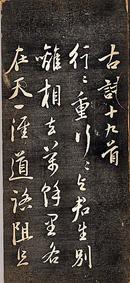 古詩十九首
行〻重行〻與君生別
離相去萬餘里各
在天一涯道路阻且